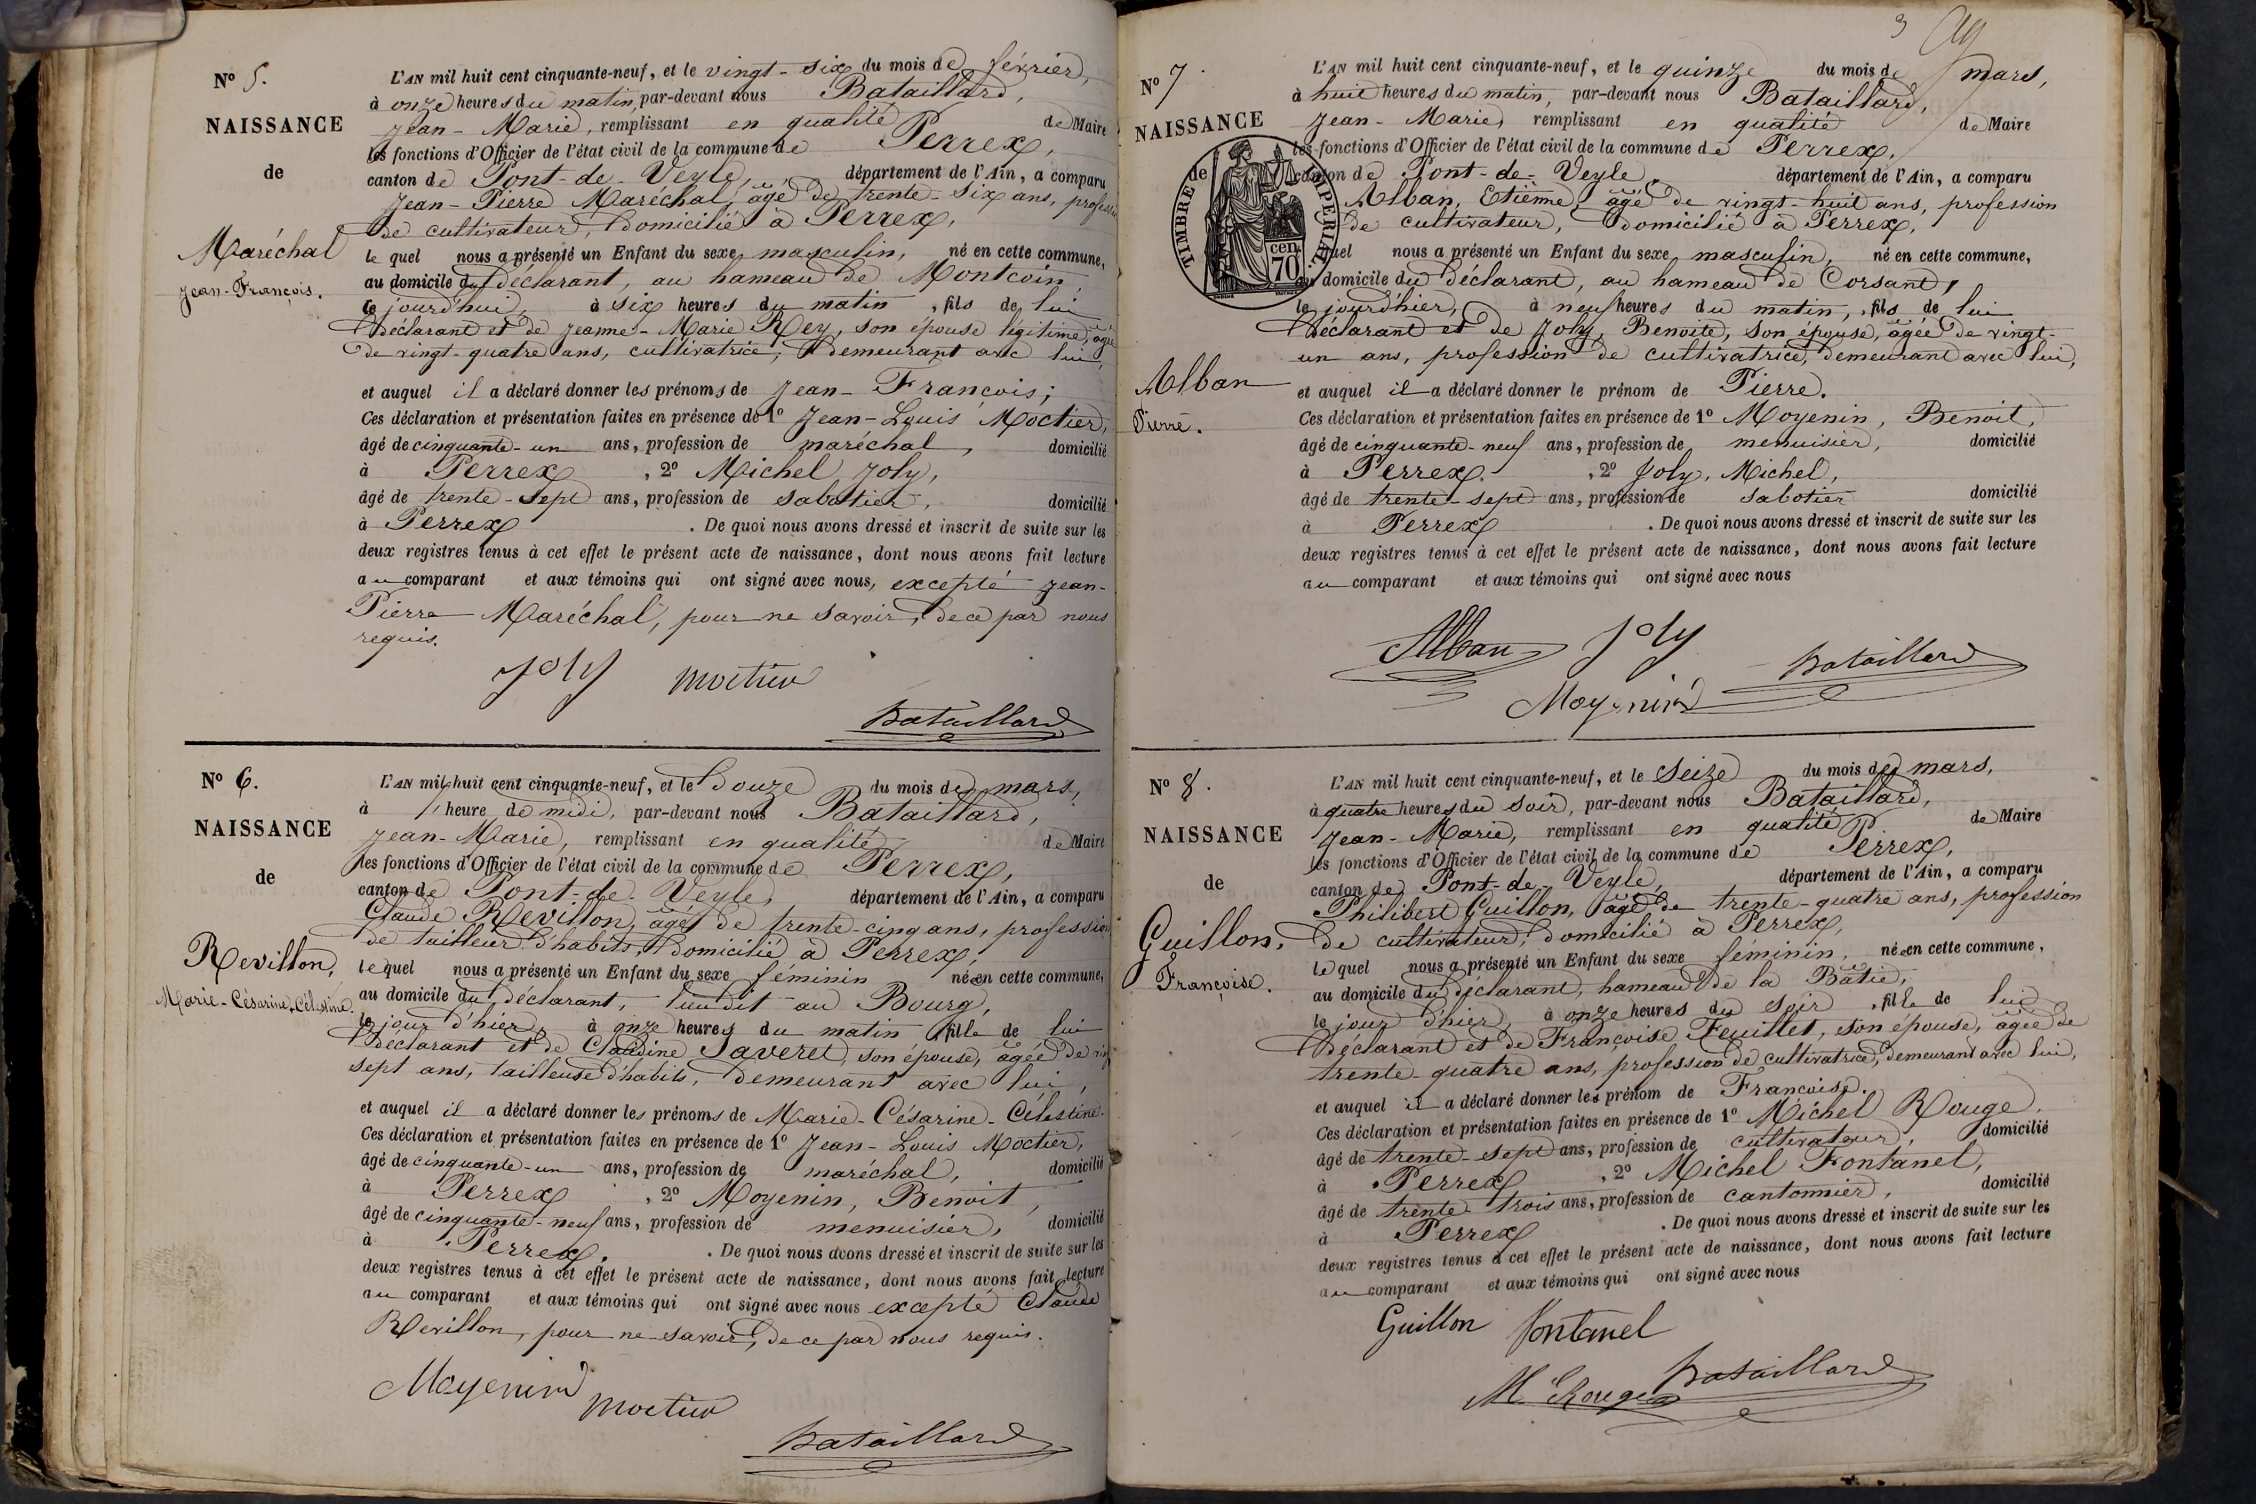 N° 5.
NAISSANCE
de
Maréchal
Jean-François.
L'AN mil huit cent cinquante-neuf, et le vingt-six du mois de février,
à onze heures du matin, par-devant nous Bataillard,
Jean-Marie, remplissant en qualité de Maire
les fonctions d'Officier de l'état civil de la commune de Perrex,
canton de Pont-de-Veyle, département de l'Ain, a comparu
Jean-Pierre Maréchal, âgé de trente-six ans, profession
de cultivateur, domicilié à Perrex,
le quel nous a présenté un Enfant du sexe masculin, né en cette commune,
au domicile du déclarant, au hameau de Montcoin,
le jourd'hui, à six heures du matin, fils de lui
déclarant et de Jeanne-Marie Rey, son épouse légitime, âgée
de vingt-quatre ans, cultivatrice, demeurant avec lui,
et auquel il a déclaré donner les prénoms de Jean-François;
Ces déclaration et présentation faites en présence de 1° Jean-Louis Moctier,
âgé de cinquante-un ans, profession de maréchal, domicilié
à Perrex, 2° Michel Joly,
âgé de trente-sept ans, profession de sabotier, domicilié
à Perrex. De quoi nous avons dressé et inscrit de suite sur les
deux registres tenus à cet effet le présent acte de naissance, dont nous avons fait lecture
au comparant et aux témoins qui ont signé avec nous, excepté Jean-
Pierre Maréchal, pour ne savoir, de ce par nous
requis.
Joly Moctier
Bataillard
N° 6.
NAISSANCE
de
Revillon,
Marie-Césarine-Célestine.
L'AN mil huit cent cinquante-neuf, et le douze du mois de mars,
à 1 heure de midi, par-devant nous Bataillard,
Jean-Marie, remplissant en qualité de Maire
les fonctions d'Officier de l'état civil de la commune de Perrex,
canton de Pont-de-Veyle, département de l'Ain, a comparu
Claude Revillon, âgé de trente-cinq ans, profession
de tailleur d'habits, domicilié à Perrex,
le quel nous a présenté un Enfant du sexe féminin née en cette commune,
au domicile du déclarant, lieu dit au Bourg,
le jour d'hier, à onze heures du matin fille de lui
déclarant et de Claudine Saveret, son épouse, âgée de vingt
sept ans, tailleuse d'habits, demeurant avec lui,
et auquel il a déclaré donner les prénoms de Marie-Césarine-Célestine.
Ces déclaration et présentation faites en présence de 1° Jean-Louis Moctier,
âgé de cinquante-un ans, profession de maréchal, domicilié
à Perrex, 2° Moyenin, Benoit,
âgé de cinquante-neuf ans, profession de menuisier, domicilié
à Perrex. De quoi nous avons dressé et inscrit de suite sur les
deux registres tenus à cet effet le présent acte de naissance, dont nous avons fait lecture
au comparant et aux témoins qui ont signé avec nous excepté Claude
Revillon, pour ne savoir, de ce par nous requis.
Moyenin
Moctier
Bataillard
3
N° 7.
NAISSANCE
de
TIMBRE IMPÉRIAL
70 cen.
Alban
Pierre.
L'AN mil huit cent cinquante-neuf, et le quinze du mois de mars,
à huit heures du matin, par-devant nous Bataillard,
Jean-Marie, remplissant en qualité de Maire
les fonctions d'Officier de l'état civil de la commune de Perrex,
canton de Pont-de-Veyle, département de l'Ain, a comparu
Alban, Etienne, âgé de vingt-huit ans, profession
de cultivateur, domicilié à Perrex,
quel nous a présenté un Enfant du sexe masculin, né en cette commune,
au domicile du déclarant, au hameau de Corsant,
le jourd'hier, à neuf heures du matin, fils de lui
déclarant et de Joly, Benoite, son épouse, âgée de vingt-
un ans, profession de cultivatrice, demeurant avec lui,
et auquel il a déclaré donner le prénom de Pierre.
Ces déclaration et présentation faites en présence de 1° Moyenin, Benoit,
âgé de cinquante-neuf ans, profession de menuisier, domicilié
à Perrex. , 2° Joly, Michel,
âgé de trente-sept ans, profession de sabotier domicilié
à Perrex. De quoi nous avons dressé et inscrit de suite sur les
deux registres tenus à cet effet le présent acte de naissance, dont nous avons fait lecture
au comparant et aux témoins qui ont signé avec nous
Alban Joly Bataillard
Moyenin
N° 8.
NAISSANCE
de
Guillon,
Françoise.
L'AN mil huit cent cinquante-neuf, et le seize du mois de mars,
à quatre heures du soir, par-devant nous Bataillard,
Jean-Marie, remplissant en qualité de Maire
les fonctions d'Officier de l'état civil de la commune de Perrex,
canton de Pont-de-Veyle, département de l'Ain, a comparu
Philibert Guillon, âgé de trente-quatre ans, profession
de cultivateur, domicilié à Perrex,
le quel nous a présenté un Enfant du sexe féminin, née en cette commune,
au domicile du déclarant, hameau de la Bâtie,
le jour d'hier, à onze heures du soir, fille de lui
déclarant et de Françoise Feuillet, son épouse, âgée de
trente-quatre ans, profession de cultivatrice, demeurant avec lui,
et auquel il a déclaré donner le prénom de Françoise.
Ces déclaration et présentation faites en présence de 1° Michel Rouge,
âgé de trente-sept ans, profession de cultivateur, domicilié
à Perrex, 2° Michel Fontanel,
âgé de trente-trois ans, profession de cantonnier, domicilié
à Perrex. De quoi nous avons dressé et inscrit de suite sur les
deux registres tenus à cet effet le présent acte de naissance, dont nous avons fait lecture
au comparant et aux témoins qui ont signé avec nous
Guillon Fontanel
M Rouge Bataillard